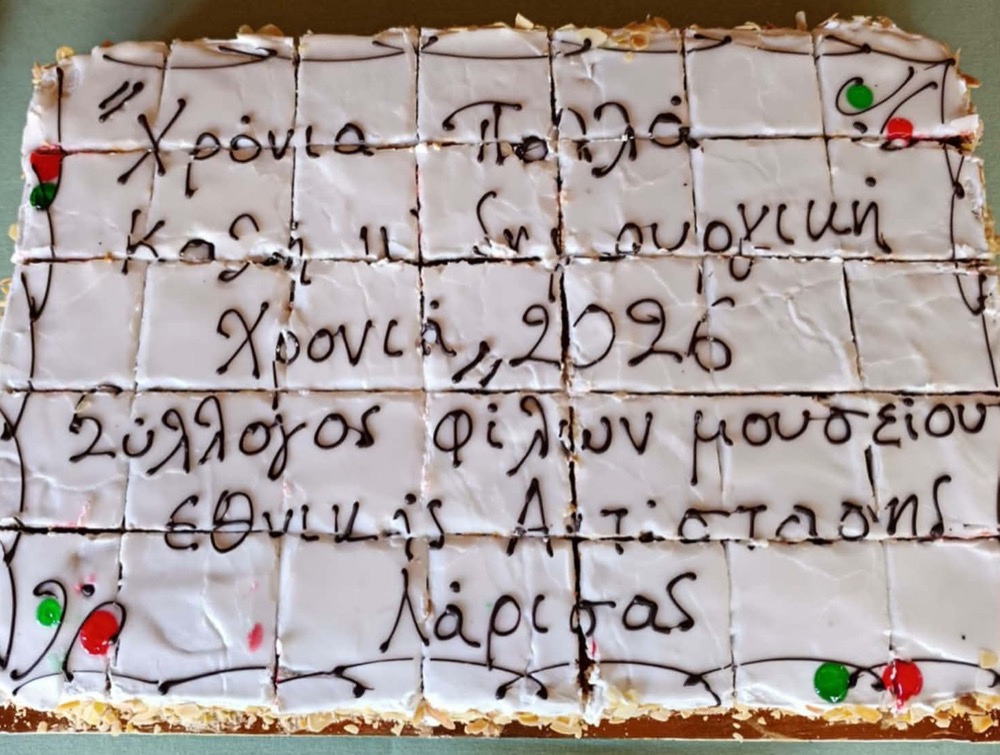 "Χρόνια Πολλά
Καλή κ δημιουργική
Χρονιά,, 2026
Σύλλογος φίλων μουσείου
Εθνικής Αντίστασης
Λάρισας